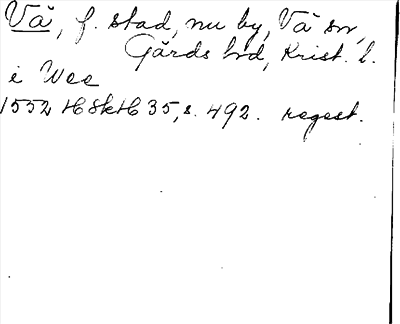 Vä, f. stad, nu by, Vä sn,
Gärds hd, Krist. l.
i Wee
1552 HSkH 35, s. 492. regest.